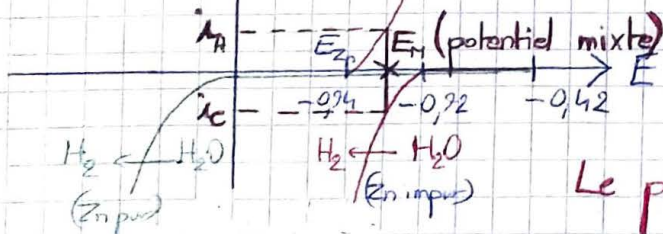 iA
EZn EM (potentiel mixte)
E
iC -0,94 -0,72 -0,42
H2 ← H2O H2 ← H2O
(Zn pur) (Zn impur)
Le p